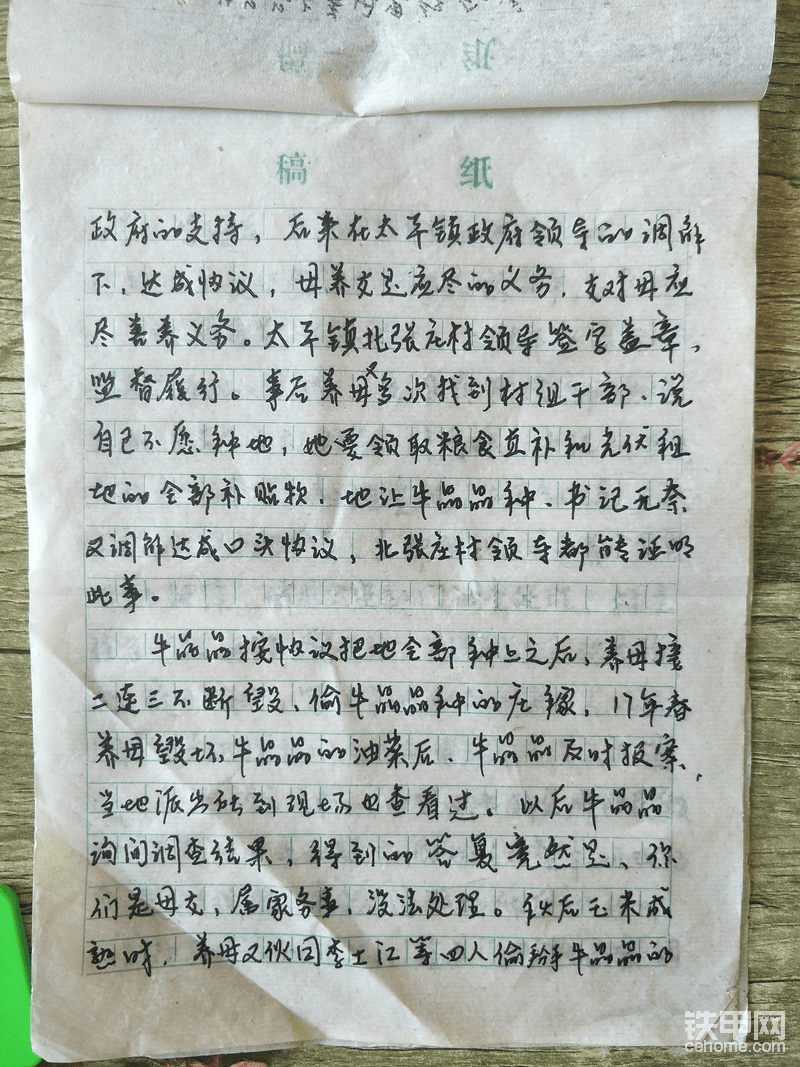 稿 纸
政府的支持，后来在太平镇政府领导的调解
下，达成协议，母养女是应尽的义务，女对母应
尽善养义务。太平镇北张庄村领导签字盖章，
监督履行。事后养母又多次找到村组干部、说
自己不愿种地，她要领取粮食直补和光伏租
地的全部补贴物，地让牛品品种、书记无奈
又调解达成口头协议，北张庄村领导都能证明
此事。
牛品品按协议把地全部种上之后，养母接
二连三不断毁、偷牛品品种的庄稼，17年春
养母毁坏牛品品的油菜后、牛品品及时报案，
当地派出所到现场也查看过。以后牛品品
询问调查结果，得到的答复竟然是、你
们是母女，属家务事，没法处理。秋后玉米成
熟时，养母又伙同李士江等四人偷掰牛品品的
铁甲网
cehome.com